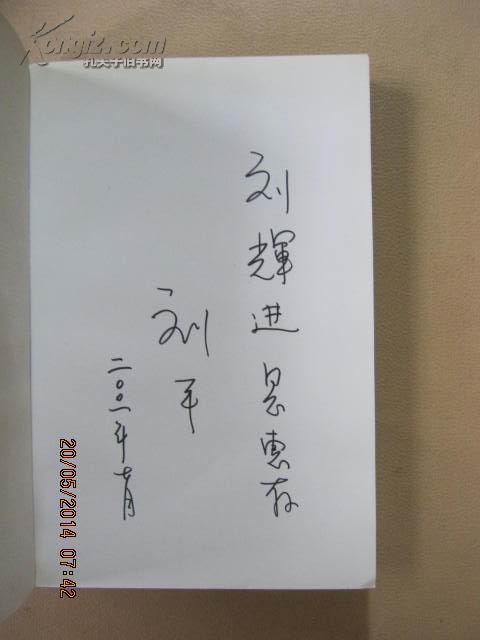 Kongfz.com
孔夫子旧书网
刘輝进惠存
刘平
二〇〇一年七月
20/05/2014 07:42